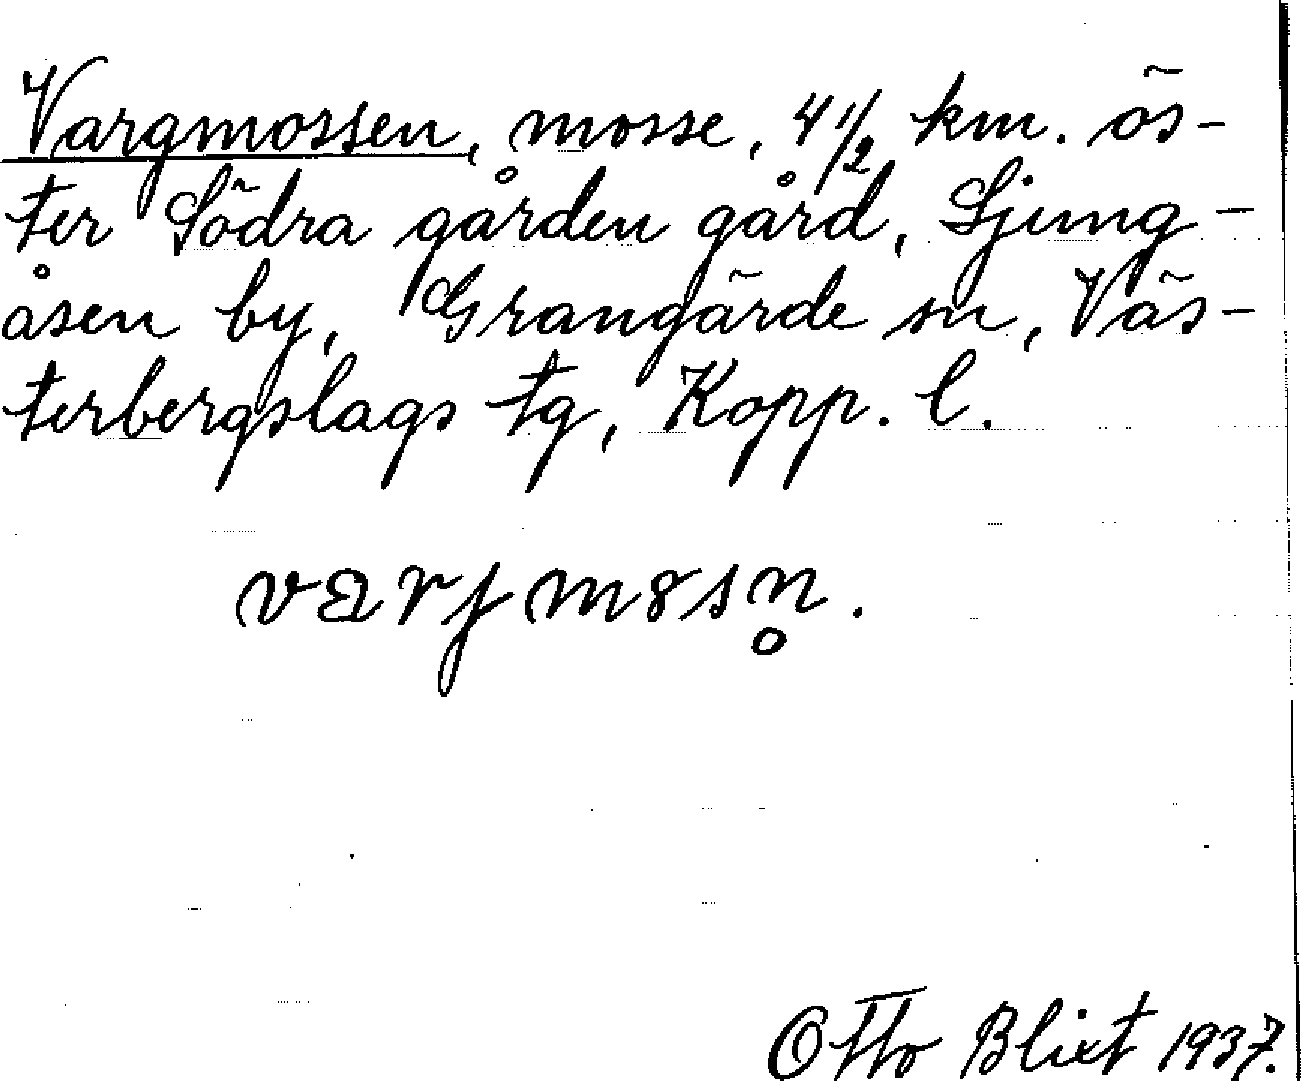 Vargmossen, mosse, 4 1/2 km. ös-
ter Södra gården gård, Ljung-
åsen by, Grangärde sn, Väs-
terbergslags tg, Kopp. l.
varjm8sn̥.
Otto Blixt 1937.